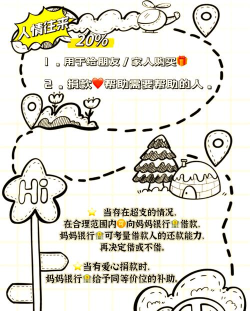 人情往来
20%
1.用于给朋友/家人购买🎁
2.捐款❤️帮助需要帮助的人。
Hi
⭐当存在超支的情况,
在合理范围内🪙向妈妈银行🏦借款,
妈妈银行🏦可考量借款人的还款能力,
再决定借或不借。
⭐当有爱心捐款时,
妈妈银行🏦给予同等价位的补助。